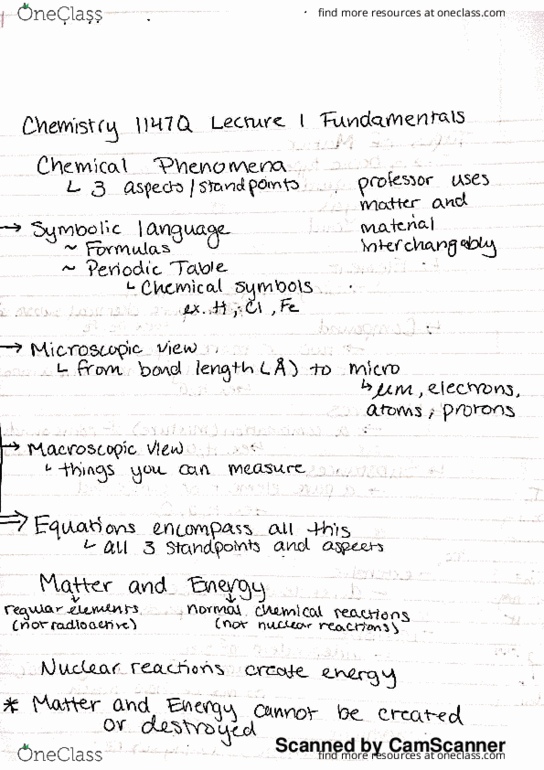 OneClass
find more resources at oneclass.com
Chemistry 1147Q Lecture 1 Fundamentals
Chemical Phenomena
↳ 3 aspects/standpoints
professor uses
matter and
material
interchangably
→ Symbolic language
~ Formulas
~ Periodic Table
↳ Chemical symbols
ex. H, Cl, Fe
→ Microscopic view
↳ from bond length (Å) to micro
↳ μm, electrons,
atoms, protons
→ Macroscopic view
↳ things you can measure
⇒ Equations encompass all this
↳ all 3 standpoints and aspects
Matter and Energy
regular elements
(not radioactive)
normal chemical reactions
(not nuclear reactions)
Nuclear reactions create energy
* Matter and Energy cannot be created
or destroyed
Scanned by CamScanner
OneClass
find more resources at oneclass.com